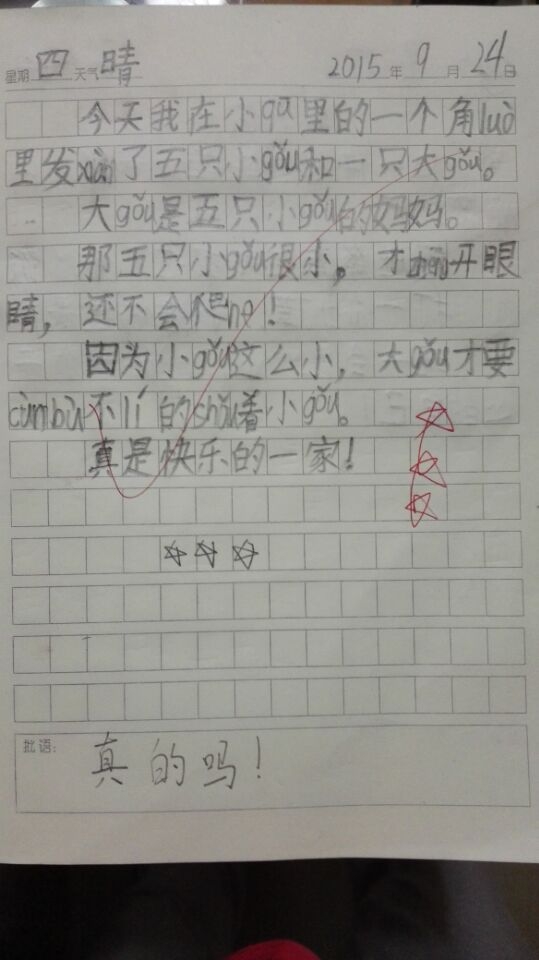 星期 四 天气 晴 2015 年 9 月 24 日
今天我在小qū里的一个角luò
里发xiàn了五只小gǒu和一只大gǒu。
大gǒu是五只小gǒu的妈妈。
那五只小gǒu很小。才zhēng开眼
睛，还不会爬ne！
因为小gǒu这么小，大gǒu才要
cùnbù不lí的shǒu着小gǒu。
真是快乐的一家！
批语：
真的吗！